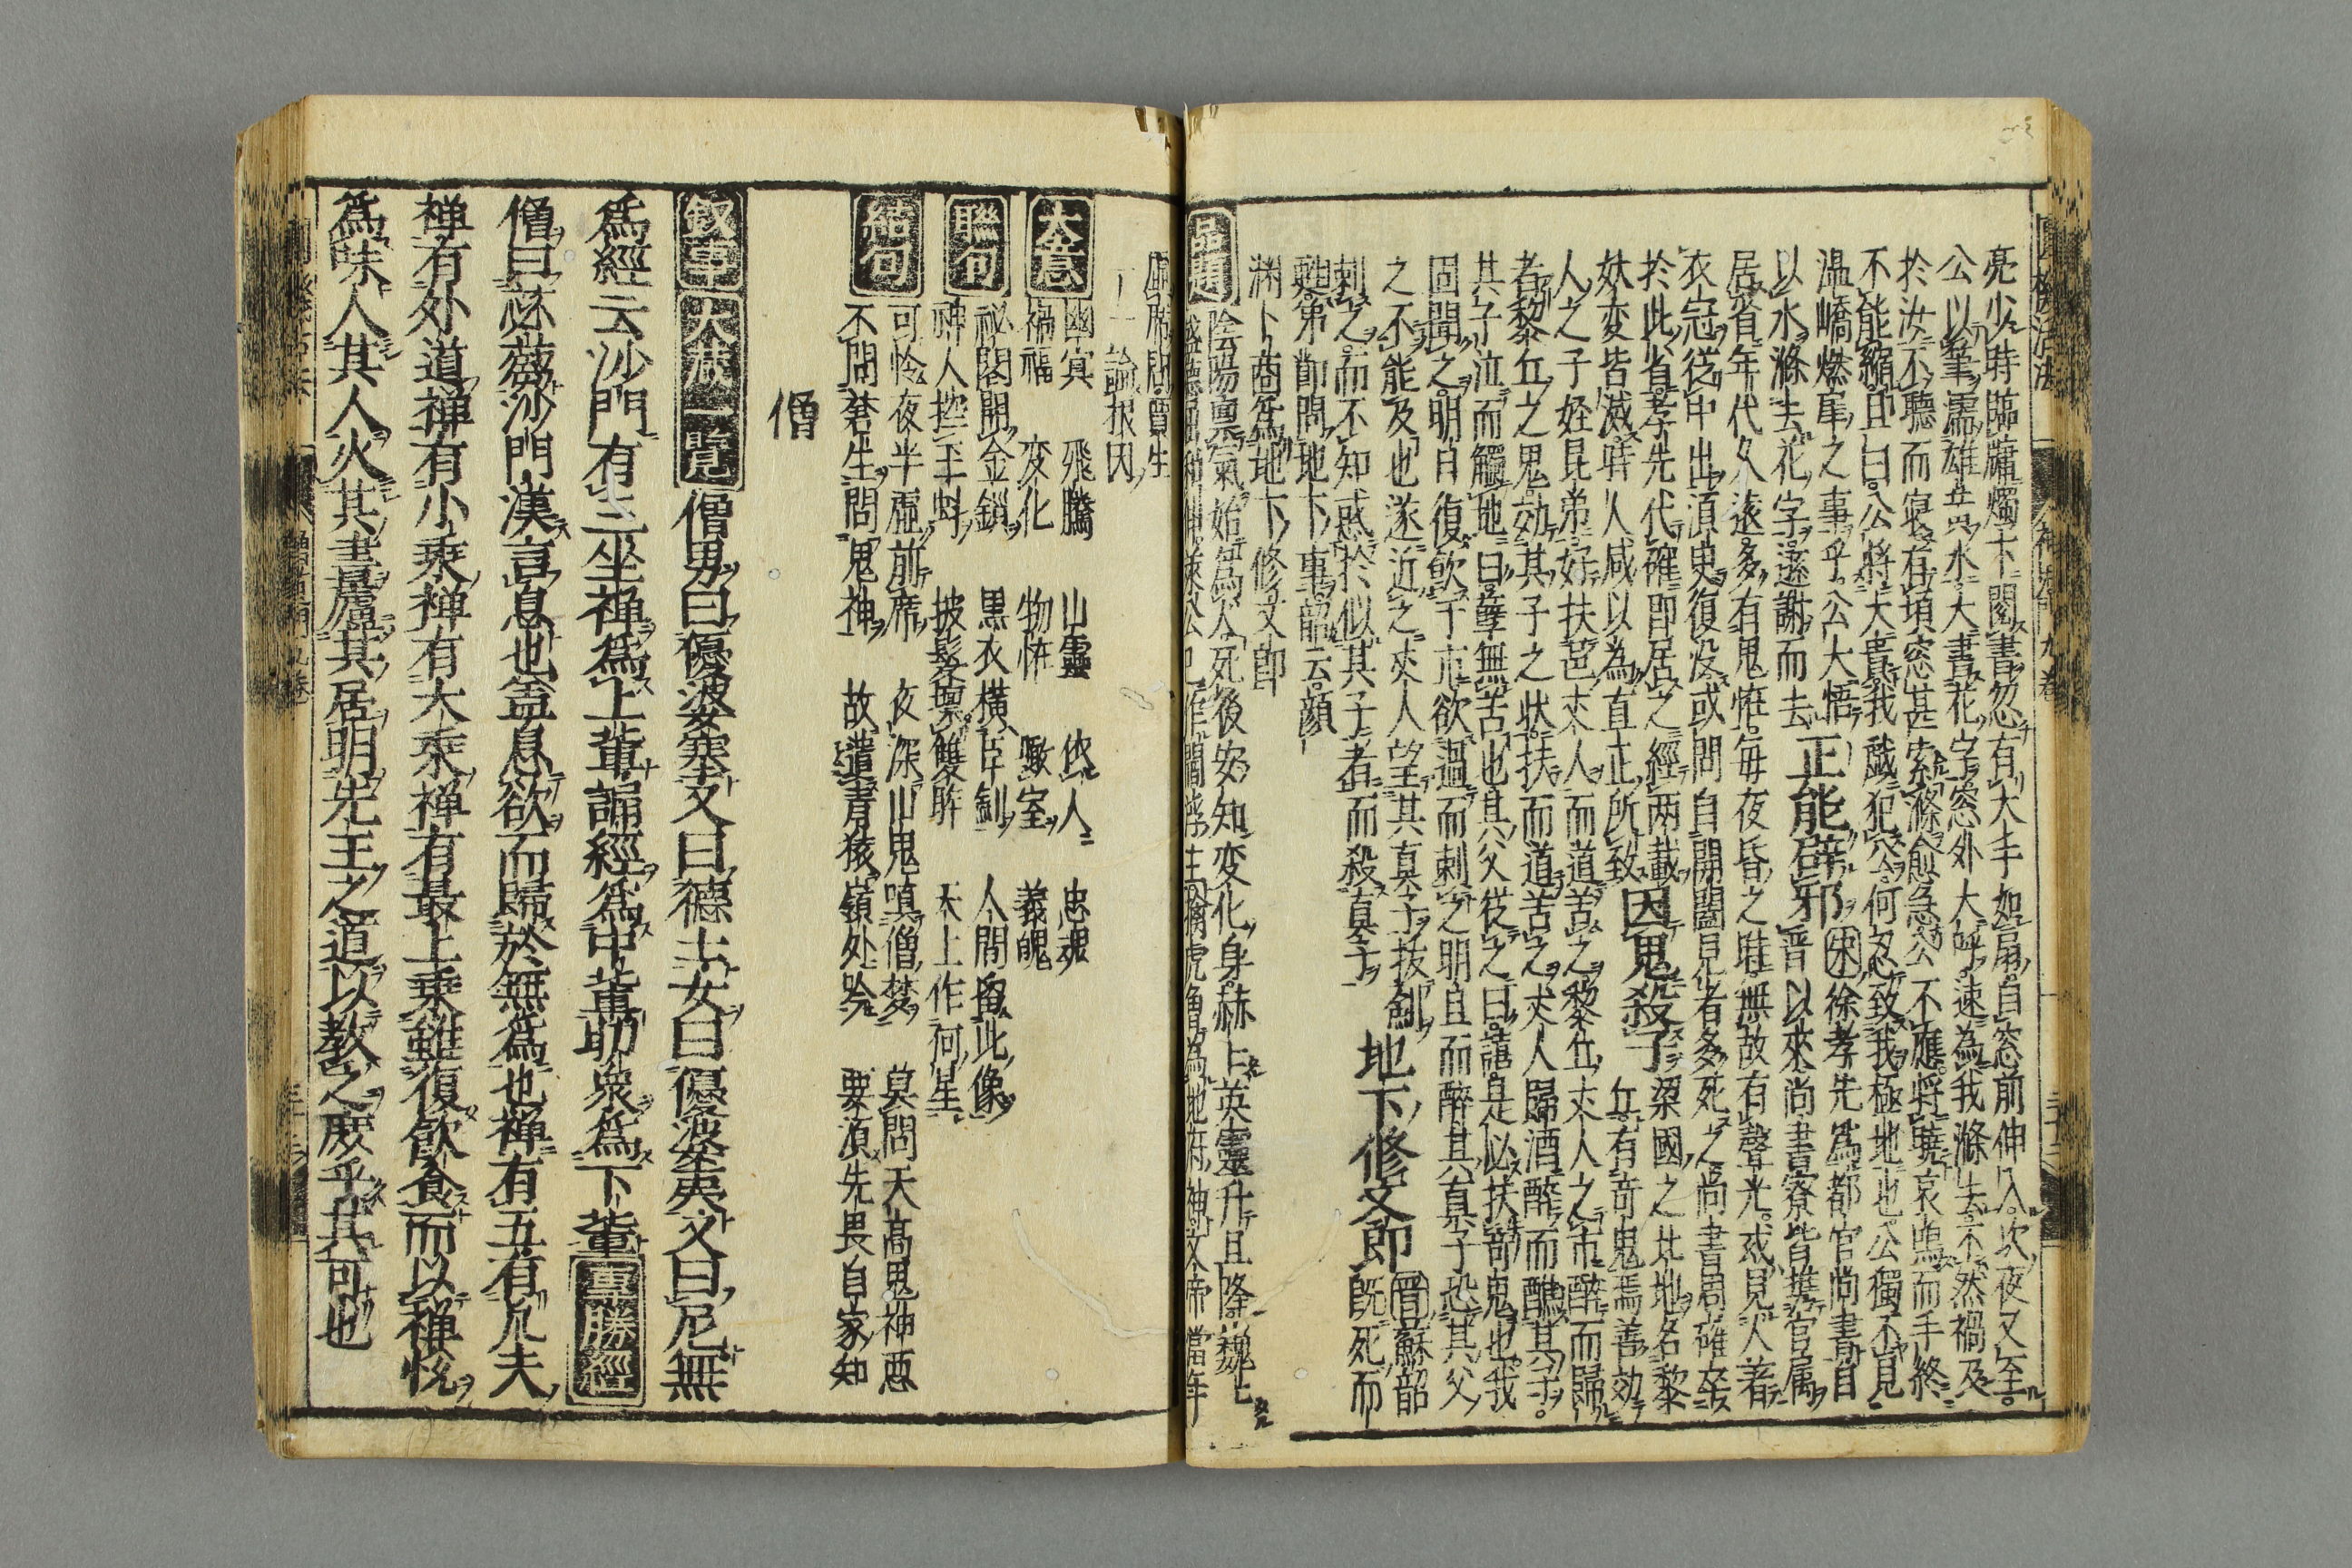 亮少時臨牖燭下閱書忽有大手如扇自窓前伸入次夜又至
公以筆濡雄黃水大書花字窓外大呼速為我滌去不然禍及
於汝不聽而寝有頃窓甚索滌愈急公不應將曉哀鳴而手終
不能縮且曰公將大貴我戯犯公何忍致我極地也公獨不見
温嶠燃犀之事乎公大悟
以水滌去花字遜謝而去
正能辟邪
宋徐孝先為都官尚書自
晋以來尚書寮皆攜官属
居省年代久遠多有鬼恠每夜昏之時無故有聲光或見人著
衣冠從中出湏臾復没或問自開闔見者多死之尚書周確卒
於此省孝先代確即居之經两載
妖変皆滅時人咸以為直正所致
因鬼殺子
梁國之北地名黎
丘有奇鬼焉善効
人之子姪昆弟好扶邑丈人而道苦之黎丘丈人之市醉而歸
者黎丘之鬼効其子之状扶而道苦之丈人歸酒醒而醮其子
其子泣而觸地曰孽無苦也其父従之曰譆是必扶奇鬼也我
固聞之明日復飲于市欲過而刺之明旦而醉其真子恐其父
之不能及也遂近之丈人望其真子抜劍
刺之而不知惑於似其子者而殺真子
地下修文郎
晉蘇韶
既死而
甦弟節問地下事韶云顔
渊卜商為地下修文郎
品題
陰陽禀氣始為人死後安知変化身赫上英靈升且降魏
大意
幽㝠 飛騰 山靈 依人 忠魂
禍福 変化 物恠 瞰室 義魄
聯句
祕閣開金鎖 黒衣横臣劍 人間留此像
神人控玉虯 披髮壞雙眸 天上作何星
結句
可怜夜半虚前席 夜深山鬼嗔僧梦 莫問天高鬼神悪
不問蒼生問鬼神 故遣青猿嶺处吟 要湏先畏自家知
僧
叙事 大藏一覽 僧男曰優波婆塞又曰德士女曰優婆夷又曰尼無
為經云沙門有三坐禅為上輩誦經為中輩助衆為下輩 専勝經
僧曰沙門漢言息也盖息欲而歸於無為也禅有五有凡夫
禅有外道禅有小乗禅有大乗禅有最上乗雖復飲食而以禅悦
為味人其人火其書廬其居明先王之道以教之庶乎其可也